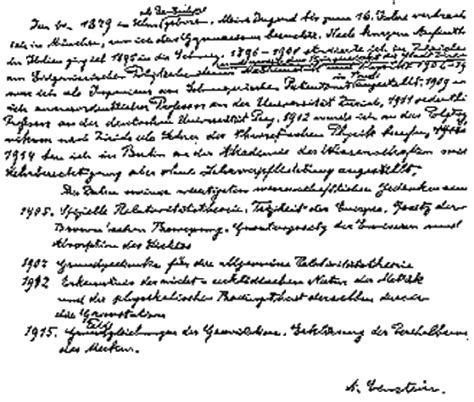 als Deutscher
Ich bin 1879 in Ulm geboren. Meine Jugend bis zum 16. Jahre verbrach
ich in München, wo ich das Gymnasium besuchte. Nach kurzem Aufenth
in Italien ging ich 1895 in die Schweiz. 1896-1900 studierte ich in Zürich
am Eidgenössischen Polytechnikum Mathematik und Physik. 1902-19
in Bern
war ich als Ingenieur am Schweizerischen Patentamt angestellt. 1909
ich ausserordentlicher Professor an der Universität Zürich, 1911 ordentli
Professor an der deutschen Universität Prag. 1912 wurde ich an das Polytech
nikum nach Zürich als Lehrer der theoretischen Physik berufen.
1914 bin ich in Berlin an der Akademie der Wissenschaften mit
Lehrberechtigung aber ohne Lehrverpflichtung angestellt.
Die Daten meiner wichtigsten wissenschaftlichen Gedanken sind
1905. Spezielle Relativitätstheorie. Trägheit der Energie. Gesetz der
Brown'schen Bewegung. Quantengesetz der Emission und
Absorption des Lichtes
1907 Grundgedanke für die allgemeine Relativitätstheorie
1912 Erkenntnis der nicht-euklidischen Natur der Metrik
und der physikalischen Bedingtheit derselben durch
die Gravitation
1915. Feldgleichungen der Gravitation. Erklärung der Perihelbewe
des Merkur.
A. Einstein.